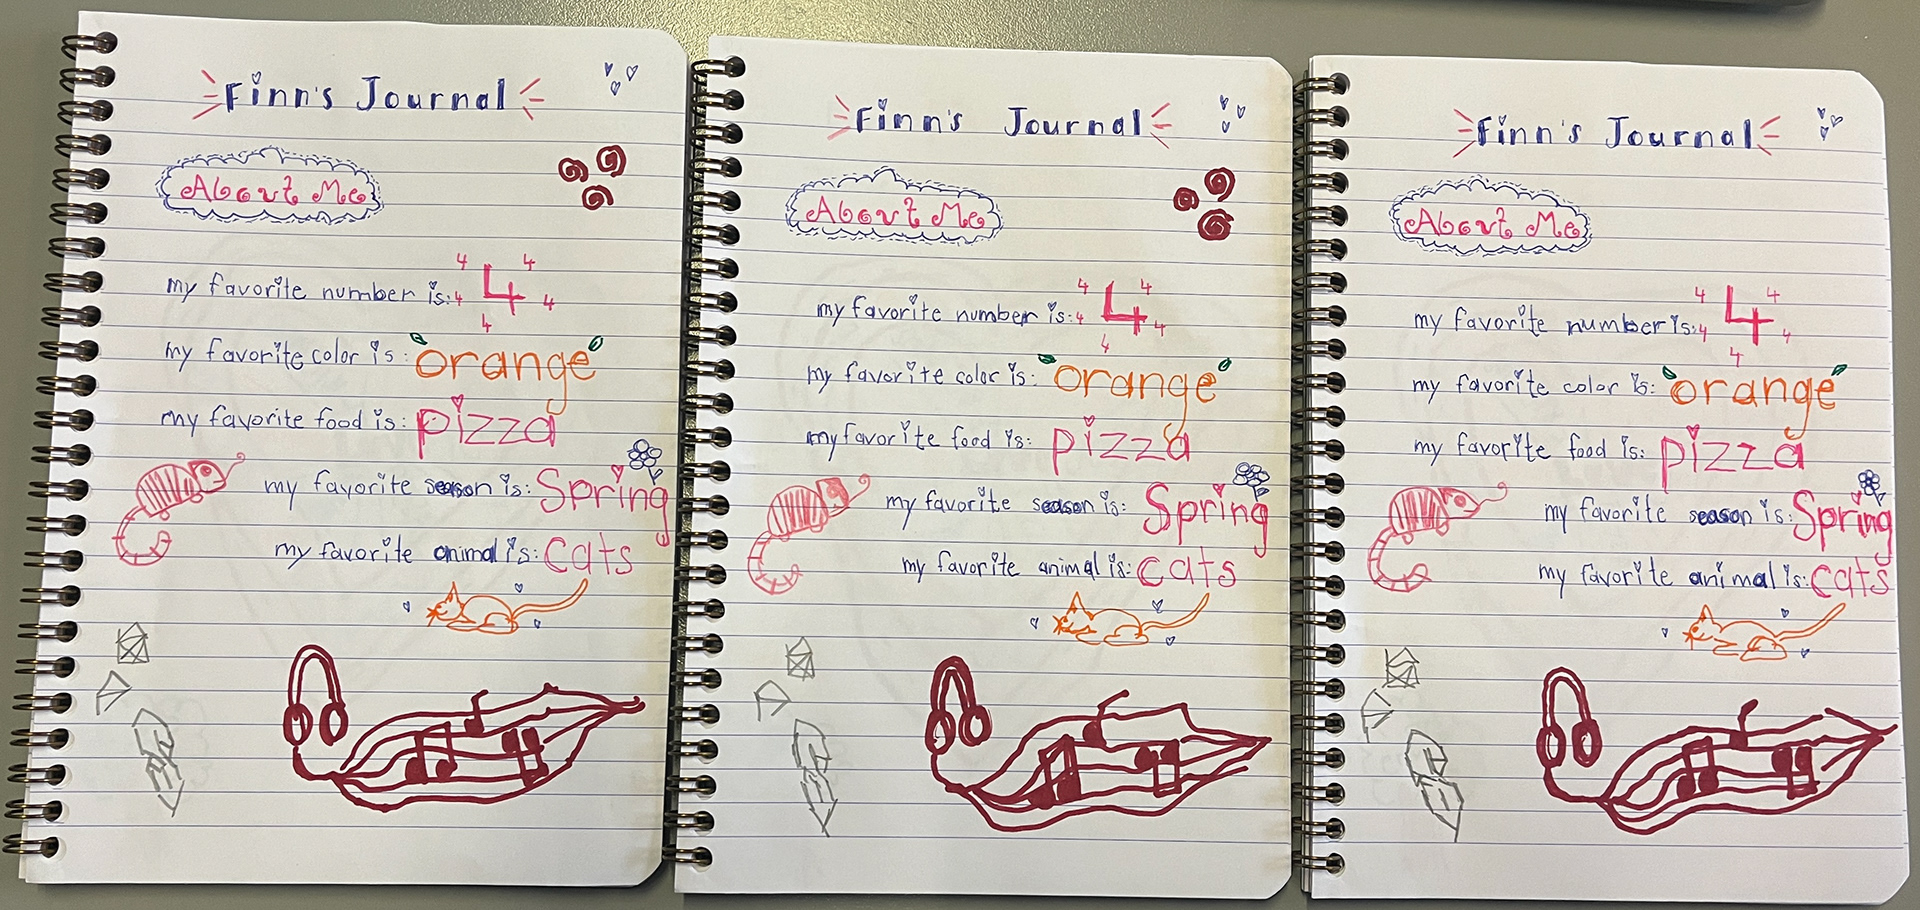 Finn's Journal
About Me
4 4
my favorite number is: 4 4 4
4
my favorite color is: orange
my favorite food is: pizza
my favorite season is: Spring
my favorite animal is: cats
Finn's Journal
About Me
4 4
my favorite number is: 4 4 4
4
my favorite color is: orange
my favorite food is: pizza
my favorite season is: Spring
my favorite animal is: cats
Finn's Journal
About Me
4 4
my favorite number is: 4 4 4
4
my favorite color is: orange
my favorite food is: pizza
my favorite season is: Spring
my favorite animal is: cats